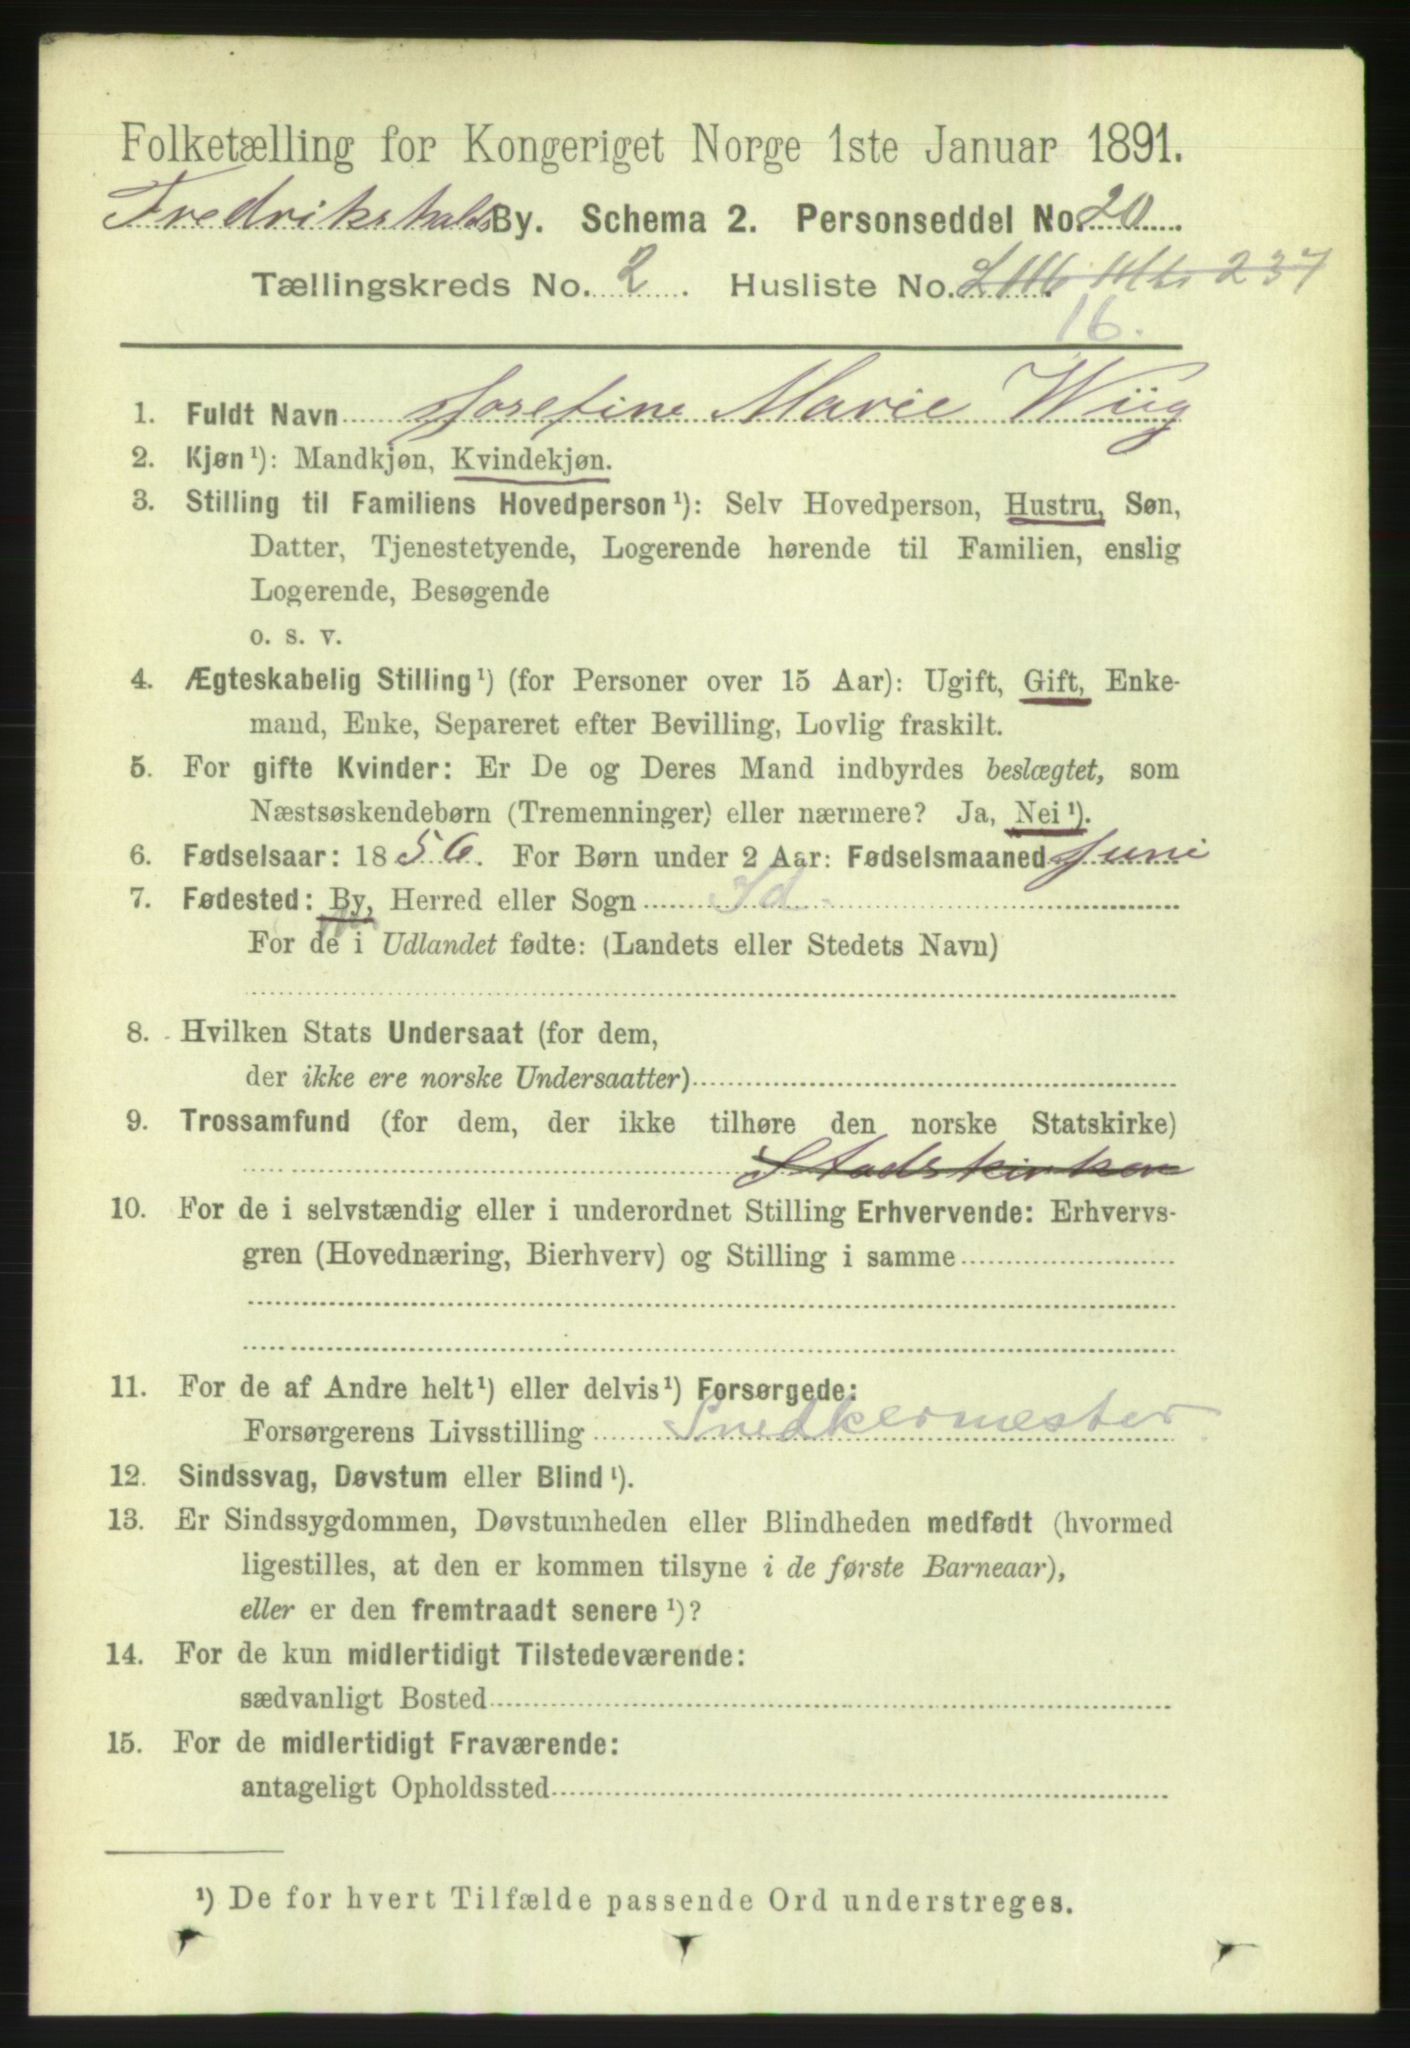 Folketælling for Kongeriget Norge 1ste Januar 1891.
Fredrikshalds By. Schema 2. Personseddel No. 20
Tællingskreds No. 2. Husliste No. 237
16.
1. Fuldt Navn Josefine Marie Wiig
2. Kjøn ¹): Mandkjøn, Kvindekjøn.
3. Stilling til Familiens Hovedperson ¹): Selv Hovedperson, Hustru, Søn,
Datter, Tjenestetyende, Logerende hørende til Familien, enslig
Logerende, Besøgende
o. s. v.
4. Ægteskabelig Stilling ¹) (for Personer over 15 Aar): Ugift, Gift, Enke-
mand, Enke, Separeret efter Bevilling, Lovlig fraskilt.
5. For gifte Kvinder: Er De og Deres Mand indbyrdes beslægtet, som
Næstsøskendebørn (Tremenninger) eller nærmere? Ja, Nei ¹).
6. Fødselsaar: 1856. For Børn under 2 Aar: Fødselsmaaned Juni
7. Fødested: By, Herred eller Sogn Id
For de i Udlandet fødte: (Landets eller Stedets Navn)
8. Hvilken Stats Undersaat (for dem,
der ikke ere norske Undersaatter)
9. Trossamfund (for dem, der ikke tilhøre den norske Statskirke)
Stadskirken
10. For de i selvstændig eller i underordnet Stilling Erhvervende: Erhvervs-
gren (Hovednæring, Bierhverv) og Stilling i samme
11. For de af Andre helt ¹) eller delvis ¹) Forsørgede:
Forsørgerens Livsstilling Snedkermester
12. Sindssvag, Døvstum eller Blind ¹).
13. Er Sindssygdommen, Døvstumheden eller Blindheden medfødt (hvormed
ligestilles, at den er kommen tilsyne i de første Barneaar),
eller er den fremtraadt senere ¹)?
14. For de kun midlertidigt Tilstedeværende:
sædvanligt Bosted
15. For de midlertidigt Fraværende:
antageligt Opholdssted
¹) De for hvert Tilfælde passende Ord understreges.